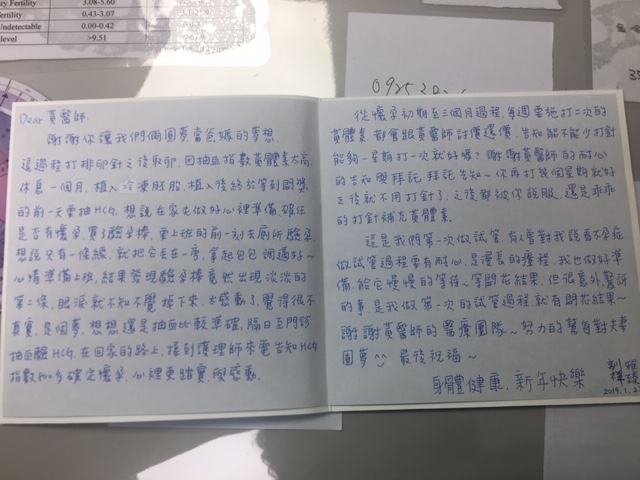 ry Fertility 3.08-5.60
fertility 0.43-3.07
Undetectable 0.00-0.42
level >9.51
Dear 黃醫師,
謝謝你讓我們倆圓夢當爸媽的夢想,
這過程打排卵針之後取卵,因抽血指數黃體素太高,
休息一個月,植入冷凍胚胎,植入後終於等到開獎
的前一天要抽HCG,想說在家先做好心裡準備,確任
是否有懷孕,買了驗孕棒,要上班的前一刻去廁所驗孕,
想說又有一條線,就把它丟在一旁,拿起包包調適好~
心情準備上班,結果發現驗孕棒竟然出現淡淡的
第二條,眼淚就不知不覺掉下來,太感動了,覺得很不
真實,是個夢,想想還是抽血比較準確,隔日至門診
抽血驗HCG,在回家的路上,接到護理師來電告知HCG
指數 多確定懷孕,心裡更踏實,與感動。
從懷孕初期至三個月過程,每週要施打二次的
黃體素,都會跟黃醫師討價還價,告知能不能少打針
能夠一星期打一次就好嗎?謝謝黃醫師的耐心
的告知與拜託拜託告知~你再打幾個星期就好
之後就不用打針了,之後都被你說服,還是乖乖
的打針補充黃體素。
這是我們第一次做試管,有人曾對我說看不孕症
做試管過程要有耐心,是漫長的療程,我也做好準
備,能它慢慢的等待~等開花結果,但很意外驚訝
的事是我做第一次的試管過程就有開花結果~
謝謝黃醫師的醫療團隊~努力的幫每對夫妻
圓夢^^ 最後祝福~
身體健康,新年快樂
2019.1.2